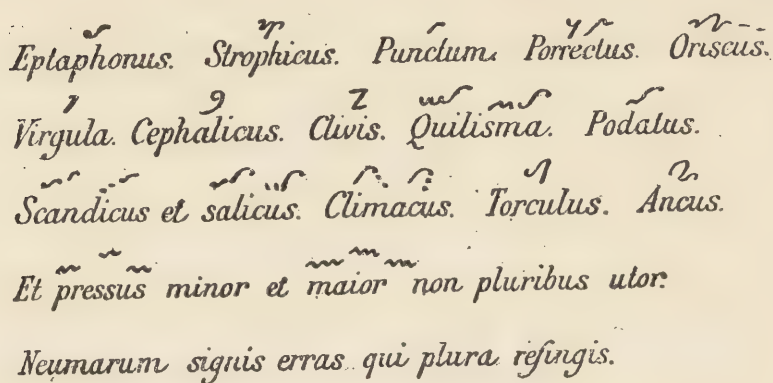 Eptaphonus. Strophicus. Punctum. Porrectus. Oriscus.
Virgula. Cephalicus. Clivis. Quilisma. Podatus.
Scandicus et salicus. Climacus. Torculus. Ancus.
Et pressus minor et maior non pluribus utor.
Neumarum signis erras qui plura refingis.